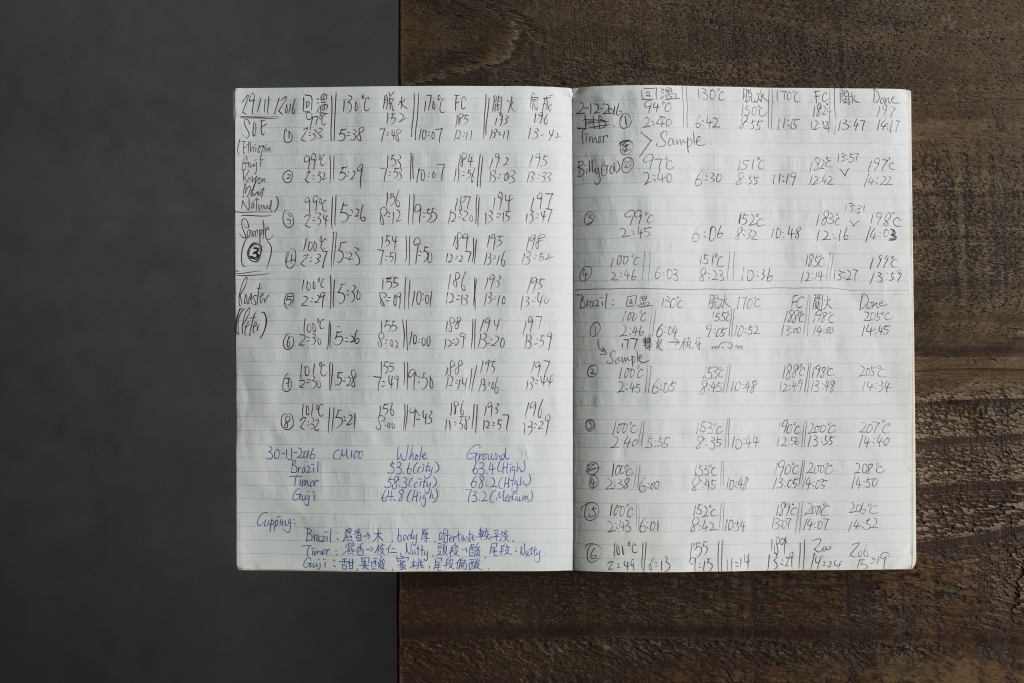 29/11/2016 回溫 130°C 脫水 170°C FC 關火 完成
SOE ① 97°C 152 185 193 196
2:33 5:38 7:48 10:07 12:11 13:11 13:42
(Ethiopia
Guji
Natural)
② 99°C 153 184 192 195
2:32 5:29 7:53 10:07 11:56 13:03 13:33
③ 99°C 156 187 194 197
2:34 5:26 8:12 9:55 12:20 13:15 13:47
Sample
③
④ 100°C 154 189 195 198
2:37 5:23 7:51 9:50 12:27 13:16 13:52
Roaster
(Peter)
⑤ 100°C 155 186 193 195
2:29 5:30 8:09 10:01 12:13 13:10 13:40
⑥ 100°C 155 188 194 197
2:30 5:26 8:03 10:00 12:29 13:20 13:59
⑦ 101°C 155 188 195 197
2:30 5:28 7:49 9:50 12:14 13:06 13:44
⑧ 101°C 156 186 193 196
2:32 5:21 8:00 9:43 11:38 12:57 13:29
30-11-2016 CM100 Whole Ground
Brazil 53.6(City) 63.4(High)
Timor 58.3(City) 68.2(High)
Guji 64.8(High) 73.2(Medium)
Cupping:
Brazil: 濕香→木, body厚, aftertaste較平淡,
Timor: 濕香→核仁, Nutty, 頭段→酸, 尾段: Nutty
Guji: 甜, 果酸, 蜜桃, 尾段偏酸.
2-12-2016 回溫 130°C 脫水 170°C FC 關火 Done
Timor ① 94°C 150°C 182 197
2:40 6:42 8:55 11:15 12:32 13:47 14:17
Sample
Billy(rod) ② 97°C 151°C 182°C 13:57 197°C
2:40 6:30 8:55 11:19 12:42 14:22
③ 99°C 152°C 183°C 13:21 198°C
2:45 6:06 8:32 10:48 12:16 14:03
④ 100°C 151°C 185°C 199°C
2:46 6:03 8:23 10:36 12:14 13:27 13:59
Brazil: 回溫 130°C 脫水 170°C FC 關火 Done
① 100°C 155°C 188°C 198°C 205°C
2:46 6:04 9:05 10:52 13:00 14:00 14:45
Sample
② 100°C 153°C 188°C 198°C 205°C
2:45 6:05 8:45 10:48 12:49 13:48 14:34
③ 100°C 153°C 190°C 200°C 207°C
2:40 5:55 8:35 10:44 12:56 13:55 14:40
④ 100°C 153°C 190°C 200°C 208°C
2:38 6:00 8:45 10:48 13:05 14:05 14:50
⑤ 100°C 152°C 189°C 200°C 206°C
2:43 6:01 8:42 10:54 13:07 14:07 14:52
⑥ 101°C 155 189 200 206
2:49 6:13 9:13 11:14 13:29 14:24 15:19